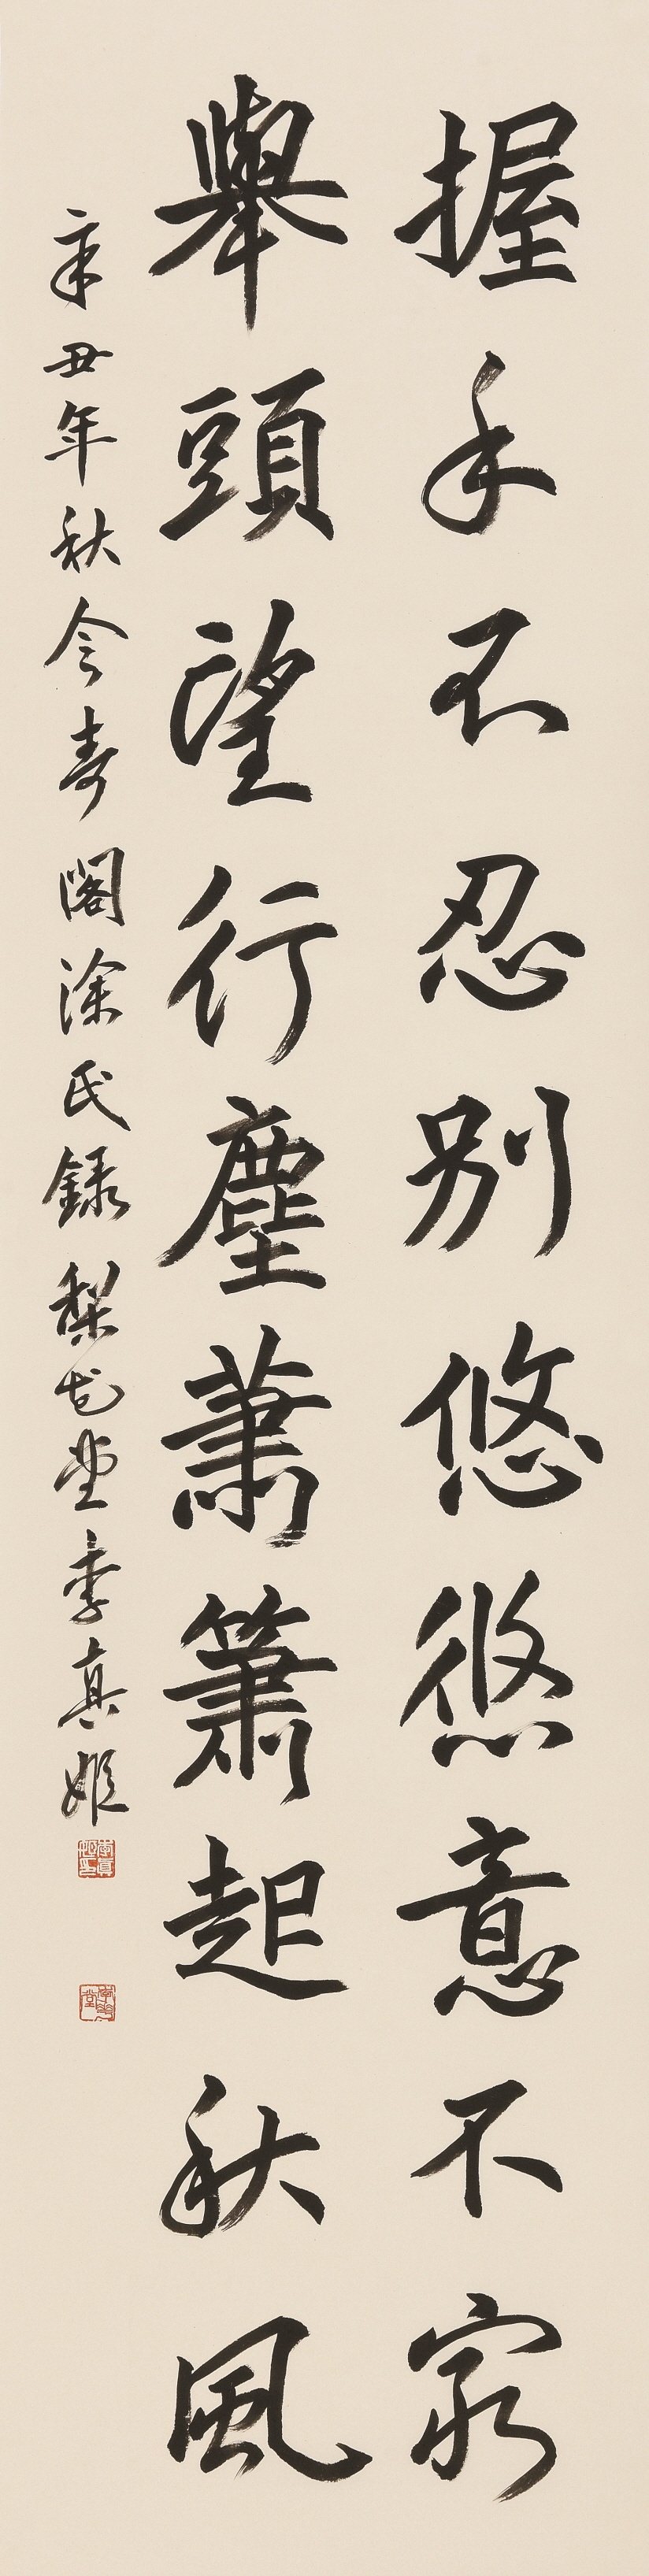 握手不忍別悠悠意不窮
舉頭望行塵蕭簫起秋風
辛丑年秋令壽閣涂氏錄梨花堂李真姬